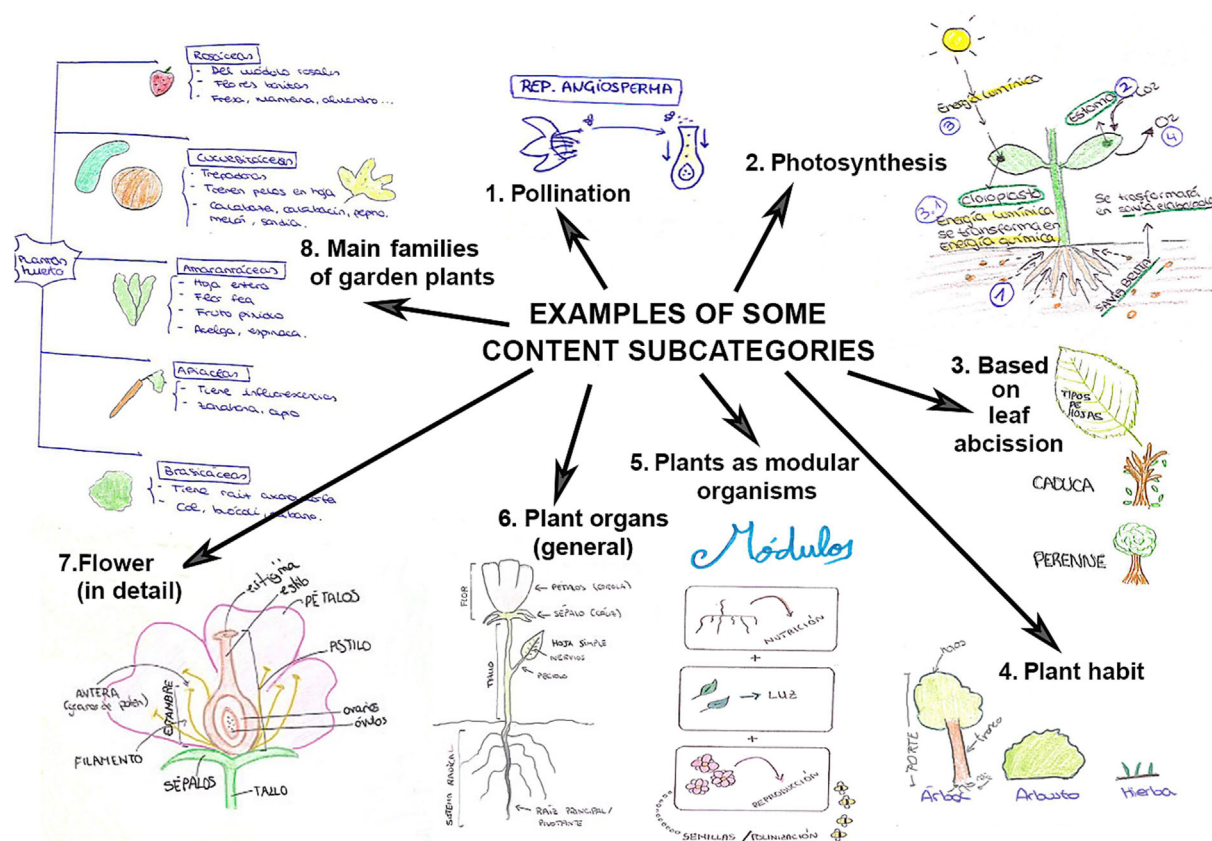 EXAMPLES OF SOME
CONTENT SUBCATEGORIES
1. Pollination
REP. ANGIOSPERMA
2. Photosynthesis
Energía lumínica
3
Estoma
2
CO2
O2
4
Cloroplasto
3.1
Energía lumínica
se transforma en
energía química
Se trasformará
en savia elaborada
1
SAVIA BRUTA
3. Based
on
leaf
abcission
TIPOS
DE
HOJAS
CADUCA
PERENNE
4. Plant habit
PORTE
Tronco
Árbol
Arbusto
Hierba
5. Plants as modular
organisms
Módulos
NUTRICIÓN
+
LUZ
+
REPRODUCCIÓN
SEMILLAS / POLINIZACIÓN
6. Plant organs
(general)
FLOR
PÉTALOS (COROLA)
SÉPALO (CÁLIZ)
TALLO
HOJA SIMPLE
NERVIOS
PECIOLO
SISTEMA RADICAL
RAÍZ PRINCIPAL /
PIVOTANTE
7. Flower
(in detail)
estigma
estilo
PÉTALOS
PISTILO
ANTERA
(granos de polen)
ESTAMBRE
ovario
óvulos
FILAMENTO
SÉPALOS
TALLO
8. Main families
of garden plants
Plantas
huerto
Rosáceas
- Del módulo rosales
- Flores bonitas
- Fresa, manzana, almendro...
Cucurbitáceas
- Trepadoras
- Tienen pelos en hoja
- Calabaza, calabacín, pepino,
melón, sandía.
Amarantáceas
- Hoja entera
- Flor fea
- Fruto pixidio
- Acelga, espinaca.
Apiáceas
- Tiene inflorescencias
- Zanahoria, apio
Brasicáceas
- Tiene raíz
- Col, brócoli, rábano.